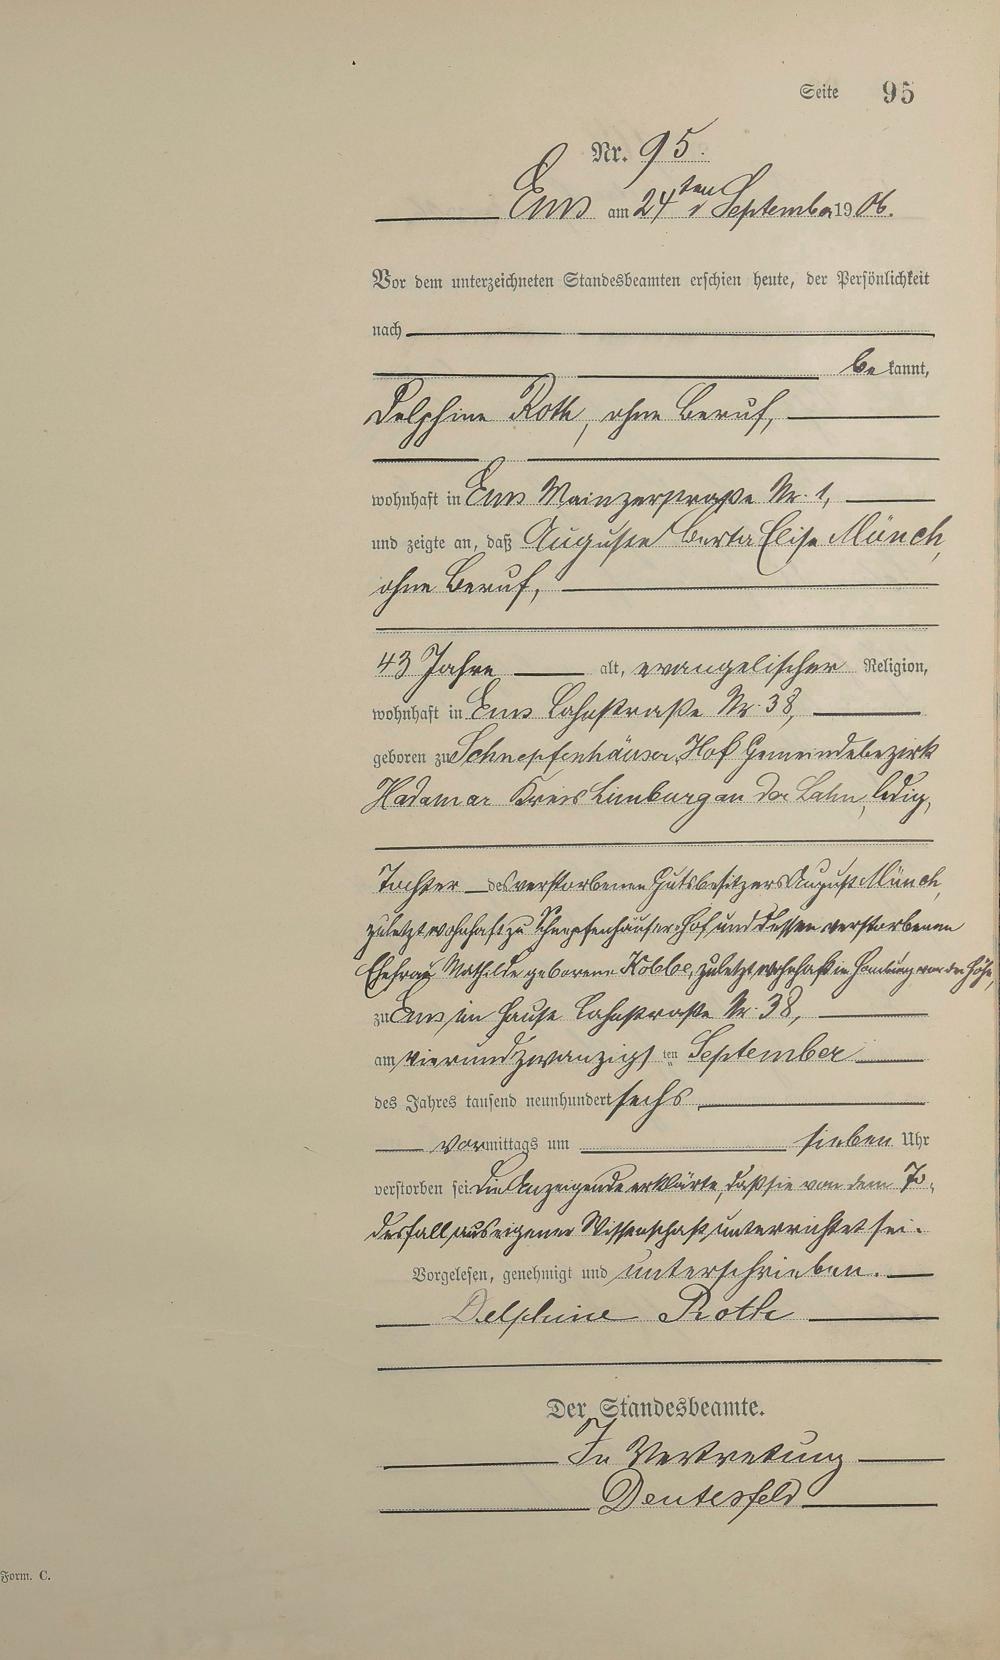 Seite 95
Nr. 95.
Ems am 24ten September 1906.
Vor dem unterzeichneten Standesbeamten erschien heute, der Persönlichkeit
nach
be kannt,
Delphine Roth, ohne Beruf,
wohnhaft in Ems Mainzerstraße Nr. 1,
und zeigte an, daß Auguste Berta Elise Münch,
ohne Beruf,
43 Jahre alt, evangelischer Religion,
wohnhaft in Ems Lahnstraße Nr. 38,
geboren zu Schnepfenhäuser Hof Gemeindebezirk
Hadamar Kreis Limburg an der Lahn, ledig,
Tochter des verstorbenen Gutsbesitzers August Münch,
zuletzt wohnhaft zu Schnepfenhäuser Hof und dessen verstorbenen
Ehefrau Mathilde geborene Kobbe, zuletzt wohnhaft in Homburg vor der Höhe,
zu Ems im Hause Lahnstraße Nr. 38,
am vierundzwanzigsten September
des Jahres tausend neunhundert sechs
Vormittags um sieben Uhr
verstorben sei. Die Anzeigende erklärte, daß sie von dem To-
desfall aus eigener Wissenschaft unterrichtet sei.
Vorgelesen, genehmigt und unterschrieben.
Delphine Roth
Der Standesbeamte.
In Vertretung
Deutesfeld
Form. C.